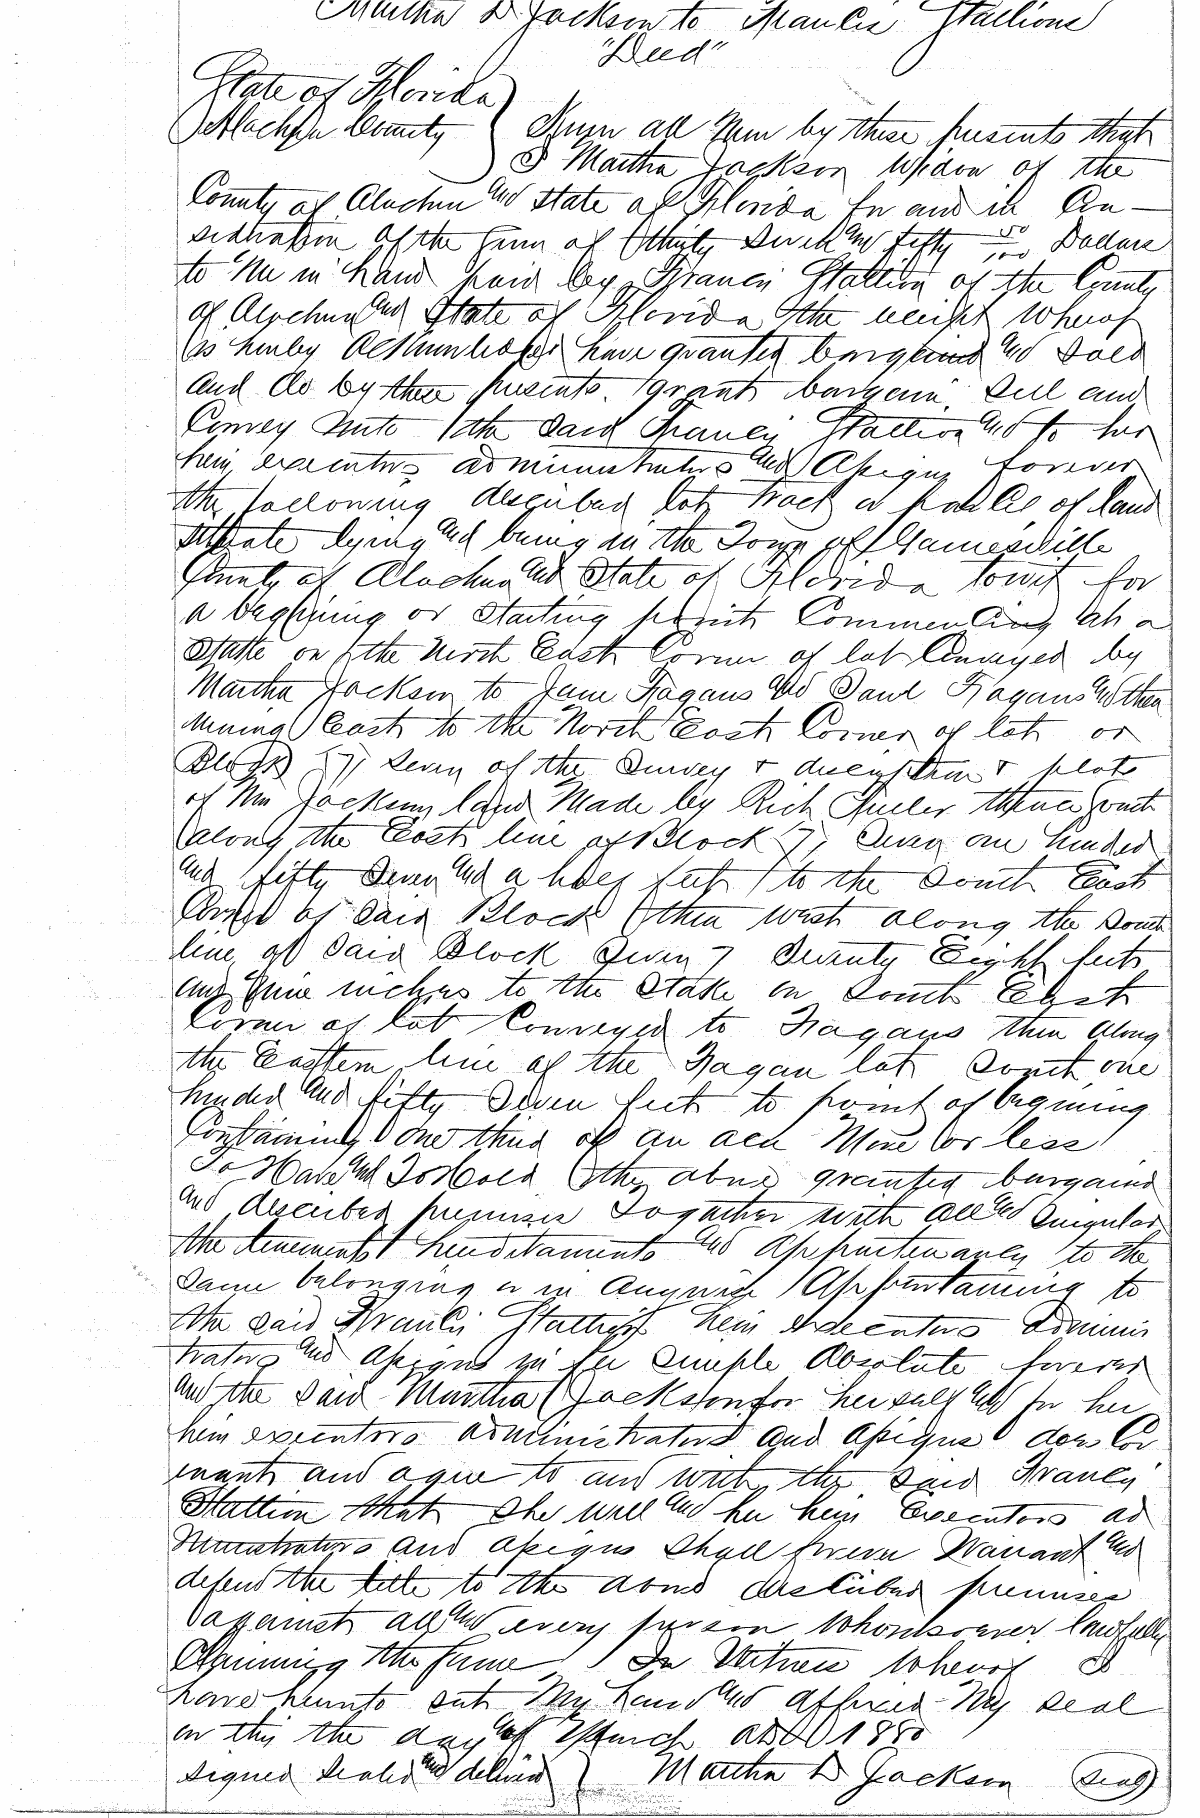 Martha D Jackson to Francis Stallions
"Deed"
State of Florida
Alachua County Know all Men by these presents that
I Martha Jackson Widow of the
County of Alachua and State of Florida for and in Con-
sideration of the sum of thirty seven and fifty 50/100 Dollars
to me in hand paid by Francis Stallion of the County
of Alachua and State of Florida the receipt whereof
is hereby Acknowledged have granted bargained and Sold
and do by these presents grant bargain Sell and
Convey Unto the Said Francis Stallion and to her
heirs executors administrators and Assigns forever
the following described lot track or parcel of land
Situate lying and being in the Town of Gainesville
County of Alachua and State of Florida towit for
a begining or starting point Commencing at a
Stake on the North East Corner of lot Conveyed by
Martha Jackson to Jane Fagans and Saul Fagans and then
runing East to the North East Corner of lot or
Block (7) seven of the Survey & description & plots
of Mrs Jackson land Made by Rich thence South
along the East line of Block (7) seven one hundred
and fifty seven and a half feet to the South East
Corner of said Block then west along the South
line of said Block Seven 7 Seventy Eight feet
and nine inches to the Stake on South East
Corner of lot Conveyed to Fagans then along
the Eastern line of the Fagan lot South one
hundred and fifty Seven feet to point of begining
Containing one third of an acre More or less
To Have and To Hold the above granted bargained
and described premises Together with all and Singular
the tenements hereditaments and Appurtenances to the
same belonging or in Anywise Appertaining to
the said Francis Stallion heirs executors adminis
trators and Assigns in fee Simple Absolute forever
and the said Martha Jackson for herself and for her
heirs executors administrators and assigns does Cov
enant and agree to and with the said Francis
Stallion that She will and her heirs Executors ad
ministrators and assigns Shall forever Warrant and
defend the title to the above described premises
against all and every person whomsoever lawfully
Claiming the same In Witness Whereof I
have hereunto set My hand and affixed My seal
on this the day of March AD 1880
Signed Sealed and delivered Martha D Jackson (Seal)